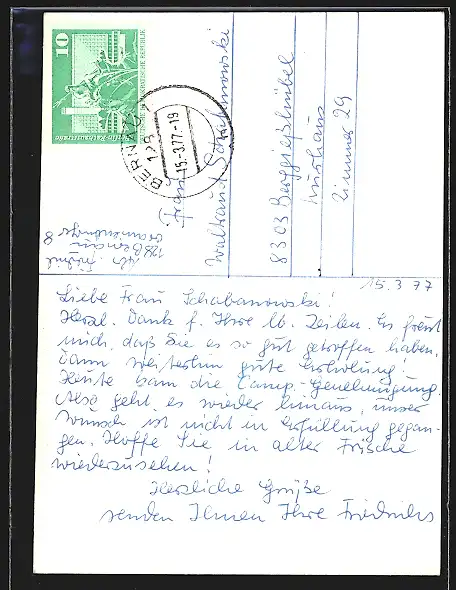 10
DEUTSCHE DEMOKRATISCHE REPUBLIK
BERNAU
128
15.-3.77-19
Abs. Friedrich
128 Bernau
8
Frau
Waltraud Schabanowski
8303 Berggießhübel
Kurhaus
Zimmer 29
15.3.77
Liebe Frau Schabanowski!
Herzl. Dank f. Ihre lb. Zeilen. Es freut
mich, daß Sie es so gut getroffen haben.
Dann weiterhin gute Erholung!
Heute kam die Camp.-Genehmigung.
Also geht es wieder hinaus, unser
Wunsch ist nicht in Erfüllung gegan-
gen. Hoffe Sie in alter Frische
wiederzusehen!
Herzliche Grüße
senden Ihnen Ihre Friedrichs